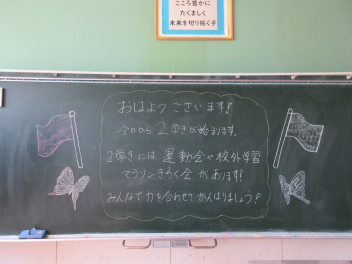 こころ豊かに
たくましく
未来を切り拓く子
おはようございます!
今日から2学きが始まります。
2学きには、運動会や校外学習
マラソンきろく会があります!
みんなで力を合わせてがんばりましょう!